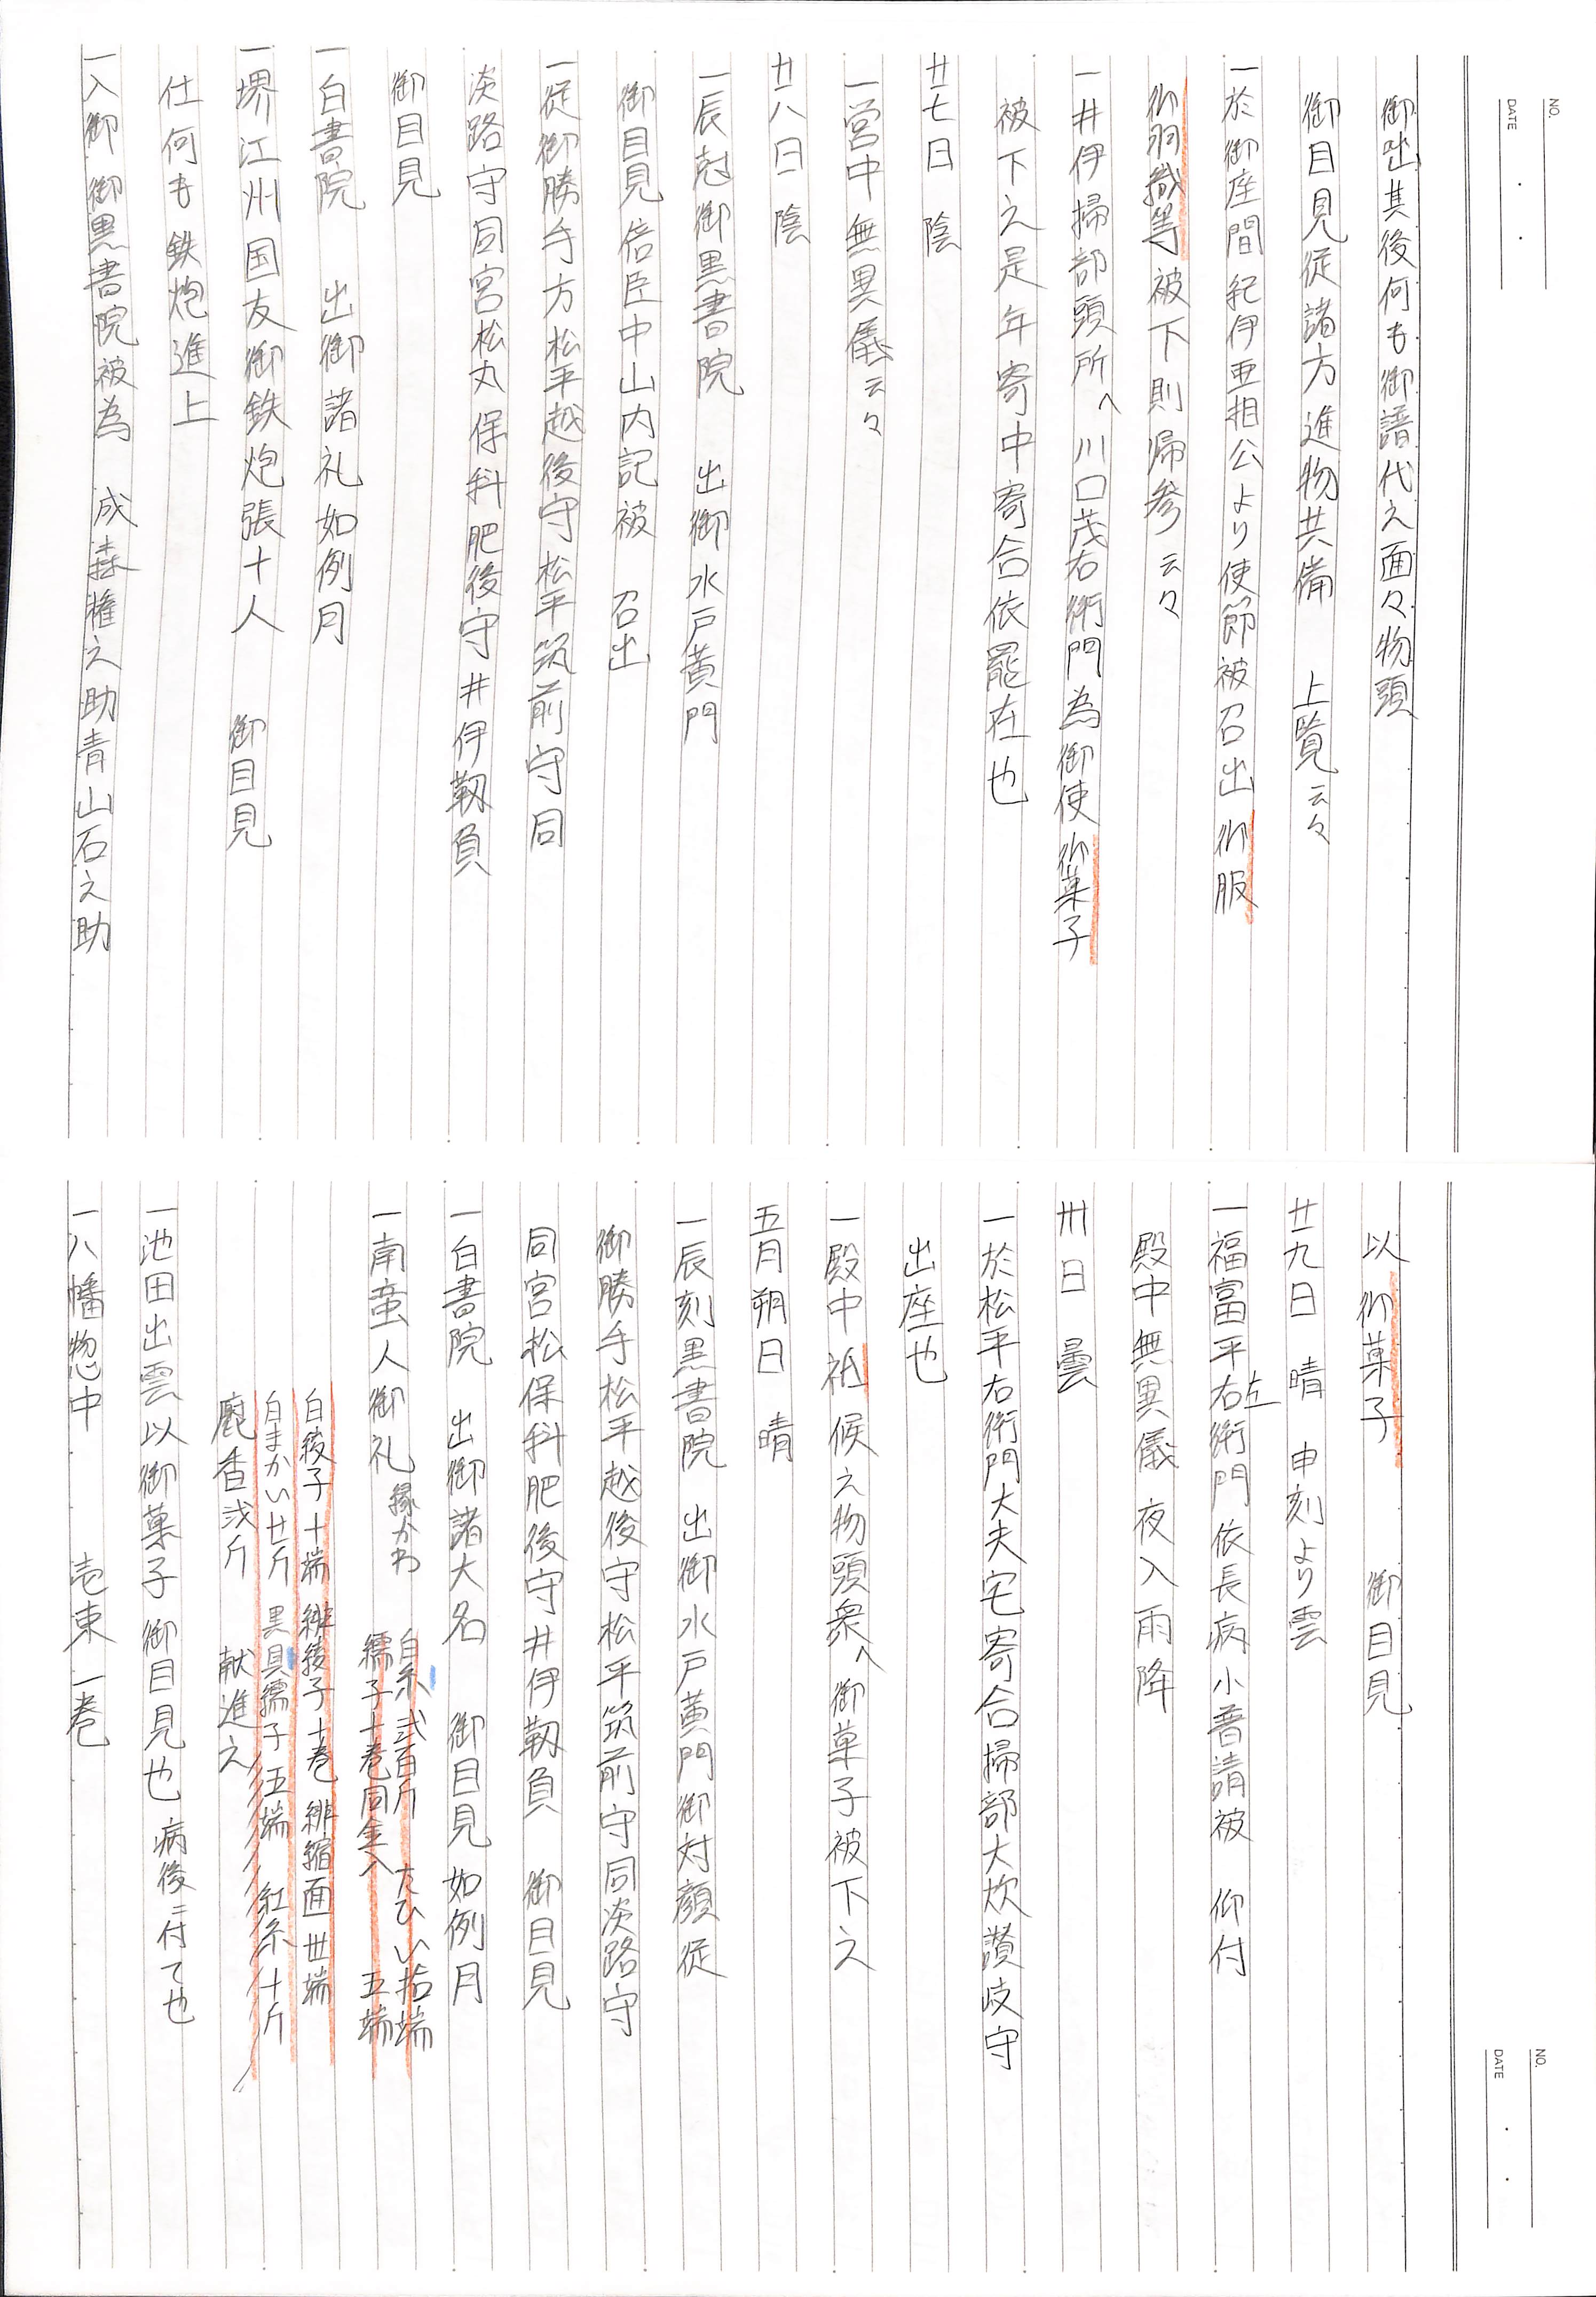 NO.
DATE
御出其後何も御譜代之面々物頭
御目見従諸方進物共備　上覧云々
一於御座間紀伊亜相公より使節被召出御服
御羽織等被下則帰参云々
一井伊掃部頭所へ川口茂右衛門為御使御菓子
被下之是年寄中寄合依罷在也
廿七日　陰
一営中無異儀云々
廿八日　陰
一辰刻御黒書院　出御水戸黄門
御目見倍臣中山内記被　召出
一従御勝手方松平越後守松平筑前守同
淡路守同宮松丸保科肥後守井伊靱負
御目見
一白書院　出御諸礼如例月
一堺江州国友御鉄炮張十人　御目見
仕何も鉄炮進上
一入御御黒書院被為　成森権之助青山石之助
NO.
DATE
以御菓子　御目見
廿九日　晴　申刻より雲
一福富平右左衛門依長病小普請被　仰付
殿中無異儀　夜入雨降
卅日　曇
一於松平右衛門大夫宅寄合掃部大炊讃岐守
出座也
一殿中祗候之物頭衆へ御菓子被下之
五月朔日　晴
一辰刻黒書院　出御水戸黄門御対顔従
御勝手松平越後守松平筑前守同淡路守
同宮松保科肥後守井伊靱負　御目見
一白書院　出御諸大名　御目見如例月
一南蛮人御礼　縁かわ　白糸弐百斤　たひい拾端
繻子十巻同金入　五端
白綾子十端　緋綾子十巻　緋縮面卅端
白まかい廿斤　黒具繻子五端　紅糸十斤
麝香弐斤　献進之
一池田出雲以御菓子御目見也　病後ニ付て也
一八幡惣中　壱束一巻